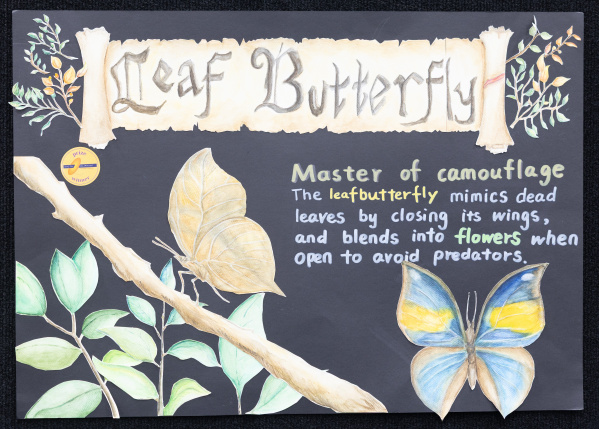 Leaf Butterfly
prize
winner
Master of camouflage
The leafbutterfly mimics dead
leaves by closing its wings,
and blends into flowers when
open to avoid predators.